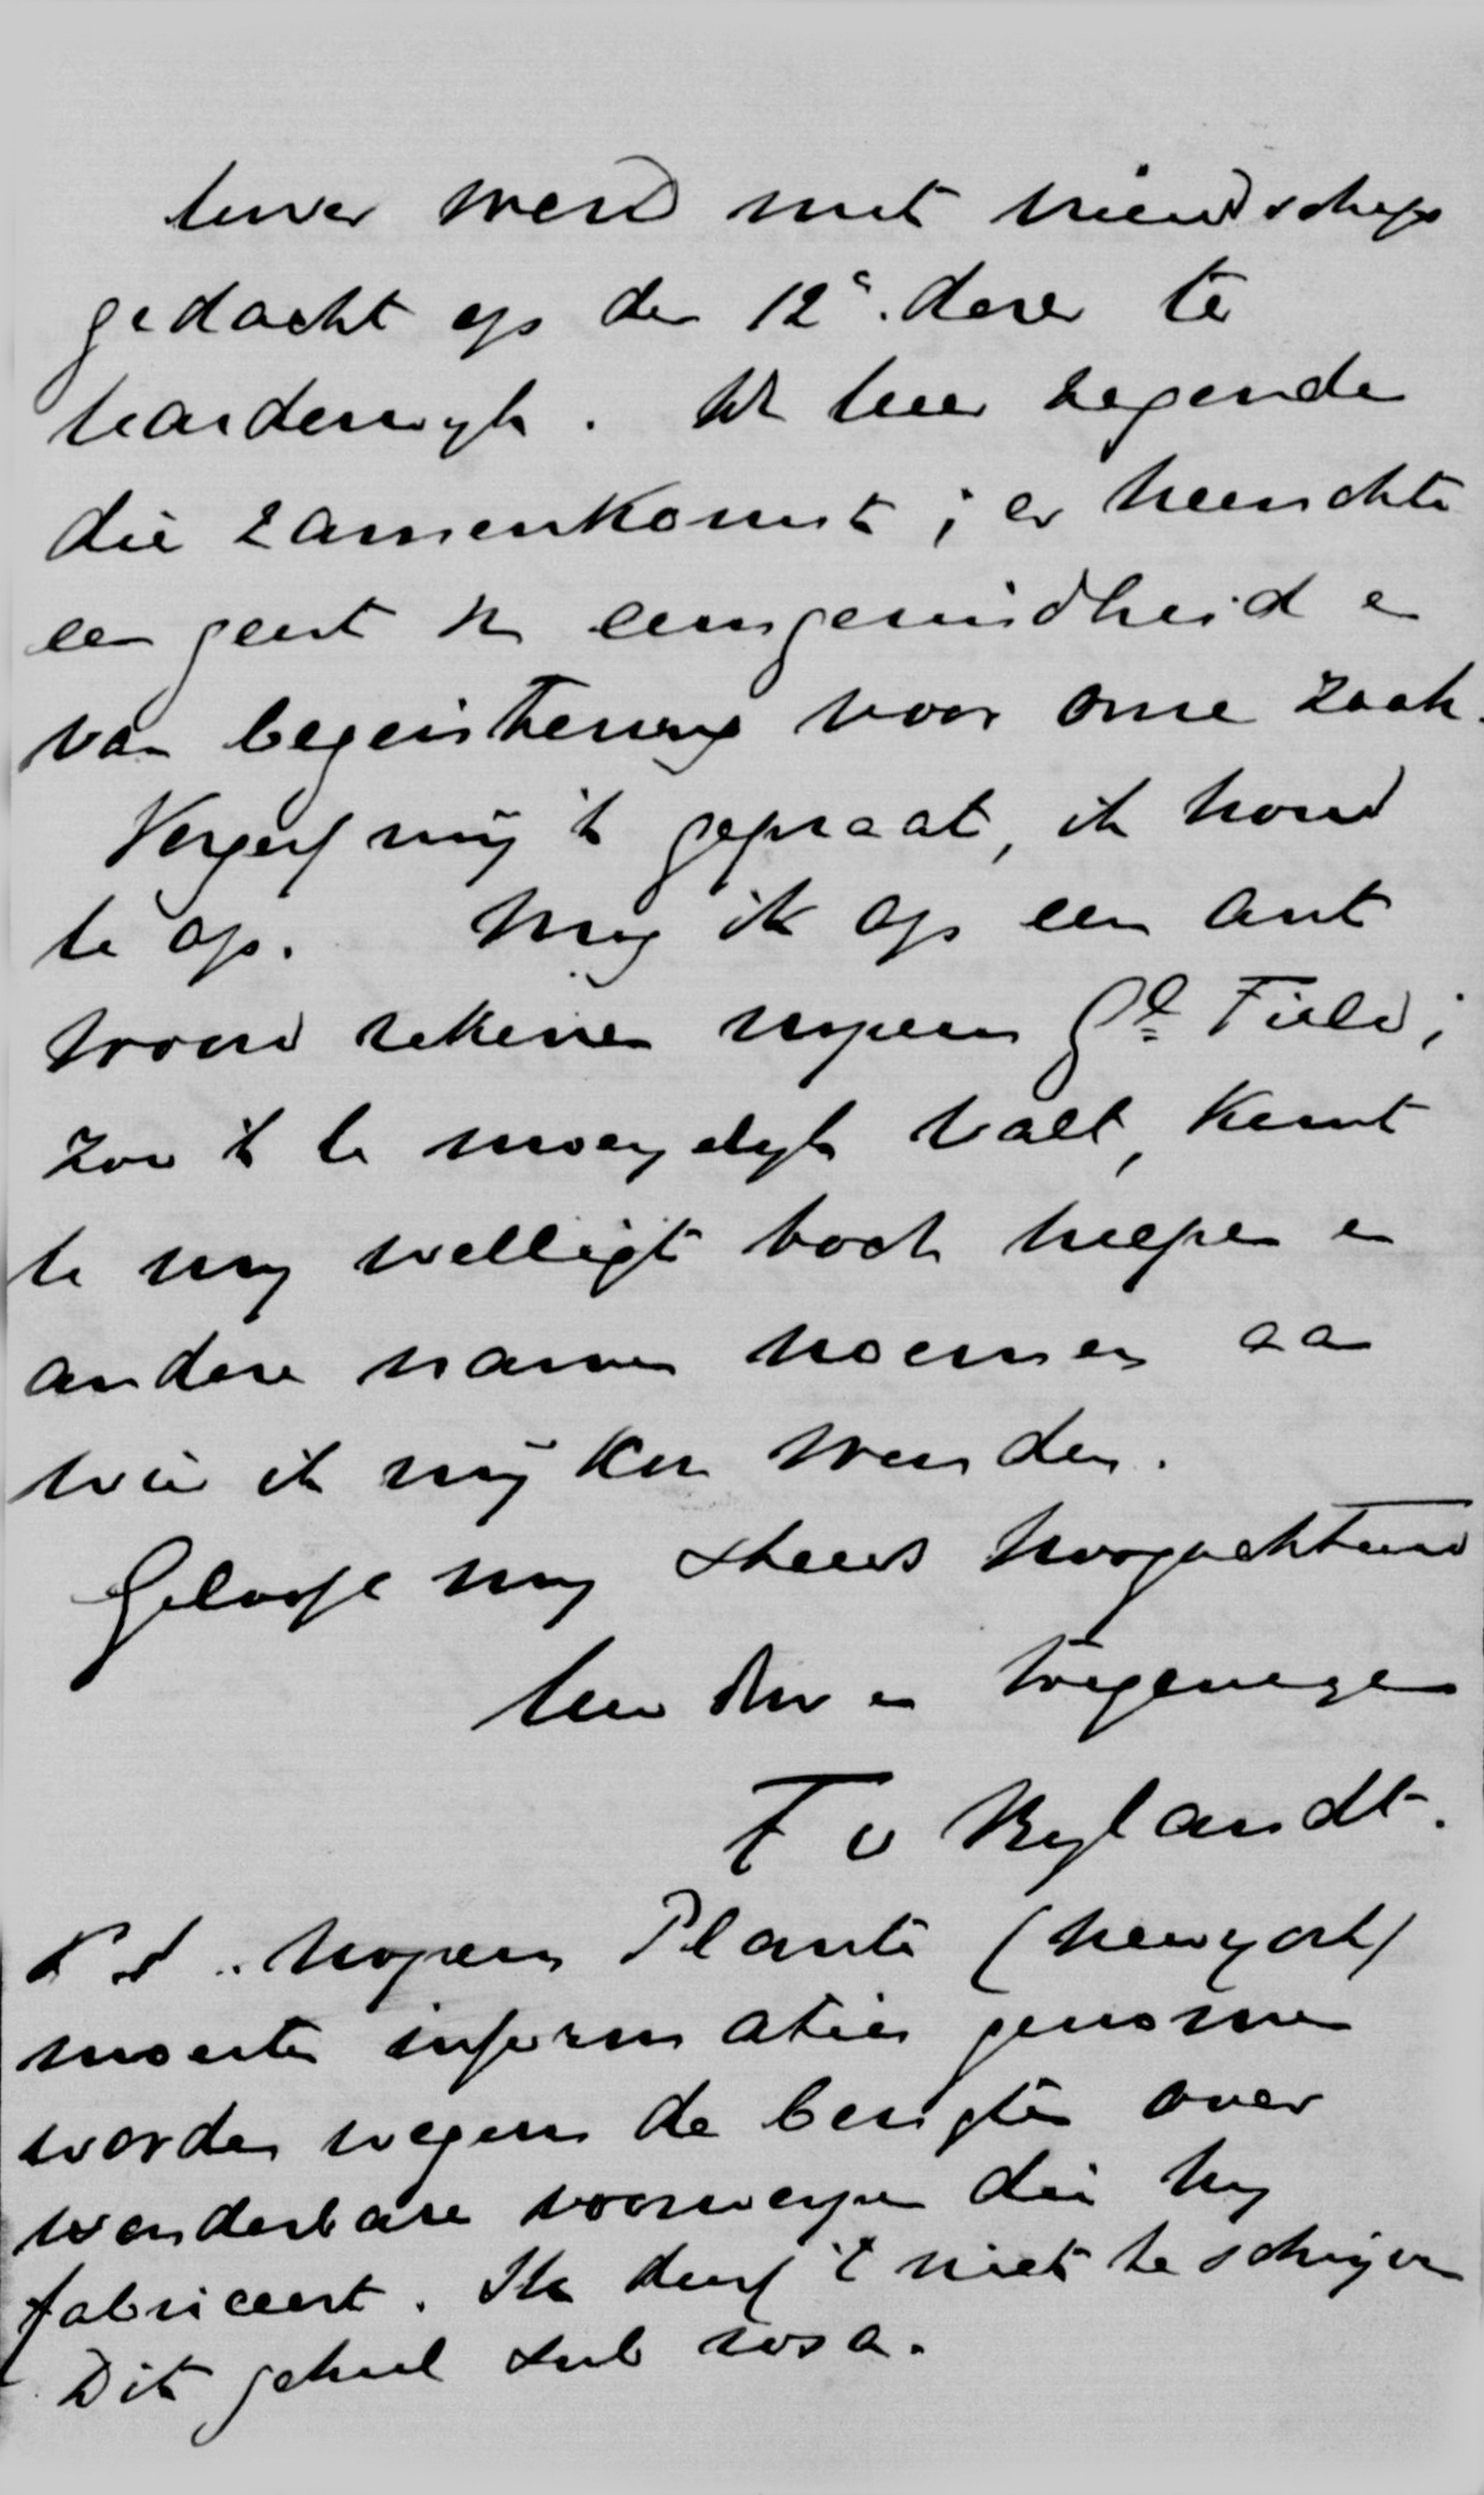 Uwer werd met vriendschap
gedacht op den 12e. dezer te
Harderwyk. De Heer zegende
die zamenkomst; er heerschte
een geest v. eensgezindheid en
van begeistering voor onze zaak.
Vergeef mij 't gepraat, ik houd
te op. Mag ik op een ant
woord rekenen nopens Gl Field;
zoo 't te moeyelyk valt, kunt
U my welligt toch helpen en
andere namen noemen aan
wie ik mij kan wenden.
Geloof my steeds hoogachtend
Uw dw en toegenegen
F v Bylandt.
P S. Nopens Plante (Newyork)
moesten informatien genomen
worden wegens de berigten over
wonderbare voorwerpen die hy
fabriceert. Ik durf 't niet te schryven
Dit geheel sub rosa.